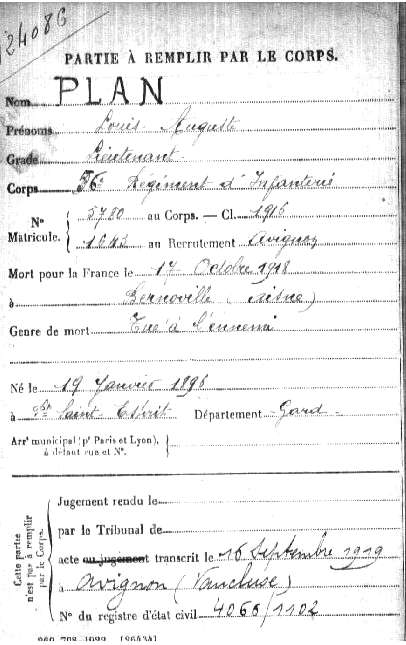 24086
PARTIE À REMPLIR PAR LE CORPS.
Nom PLAN
Prénoms Louis Auguste
Grade Lieutenant
Corps 56e Régiment d'Infanterie
No 5780 au Corps. — Cl. 1916
Matricule. 1643 au Recrutement Avignon
Mort pour la France le 17 Octobre 1918
à Bernoville (Aisne)
Genre de mort Tué à l'ennemi
Né le 19 Janvier 1896
à Pont Saint Esprit Département Gard
Arrt municipal (pr Paris et Lyon),
à défaut rue et No.
Cette partie
n'est pas à remplir
par le Corps.
Jugement rendu le
par le Tribunal de
acte ou jugement transcrit le 16 Septembre 1919
à Avignon (Vaucluse)
No du registre d'état civil 4066/1102